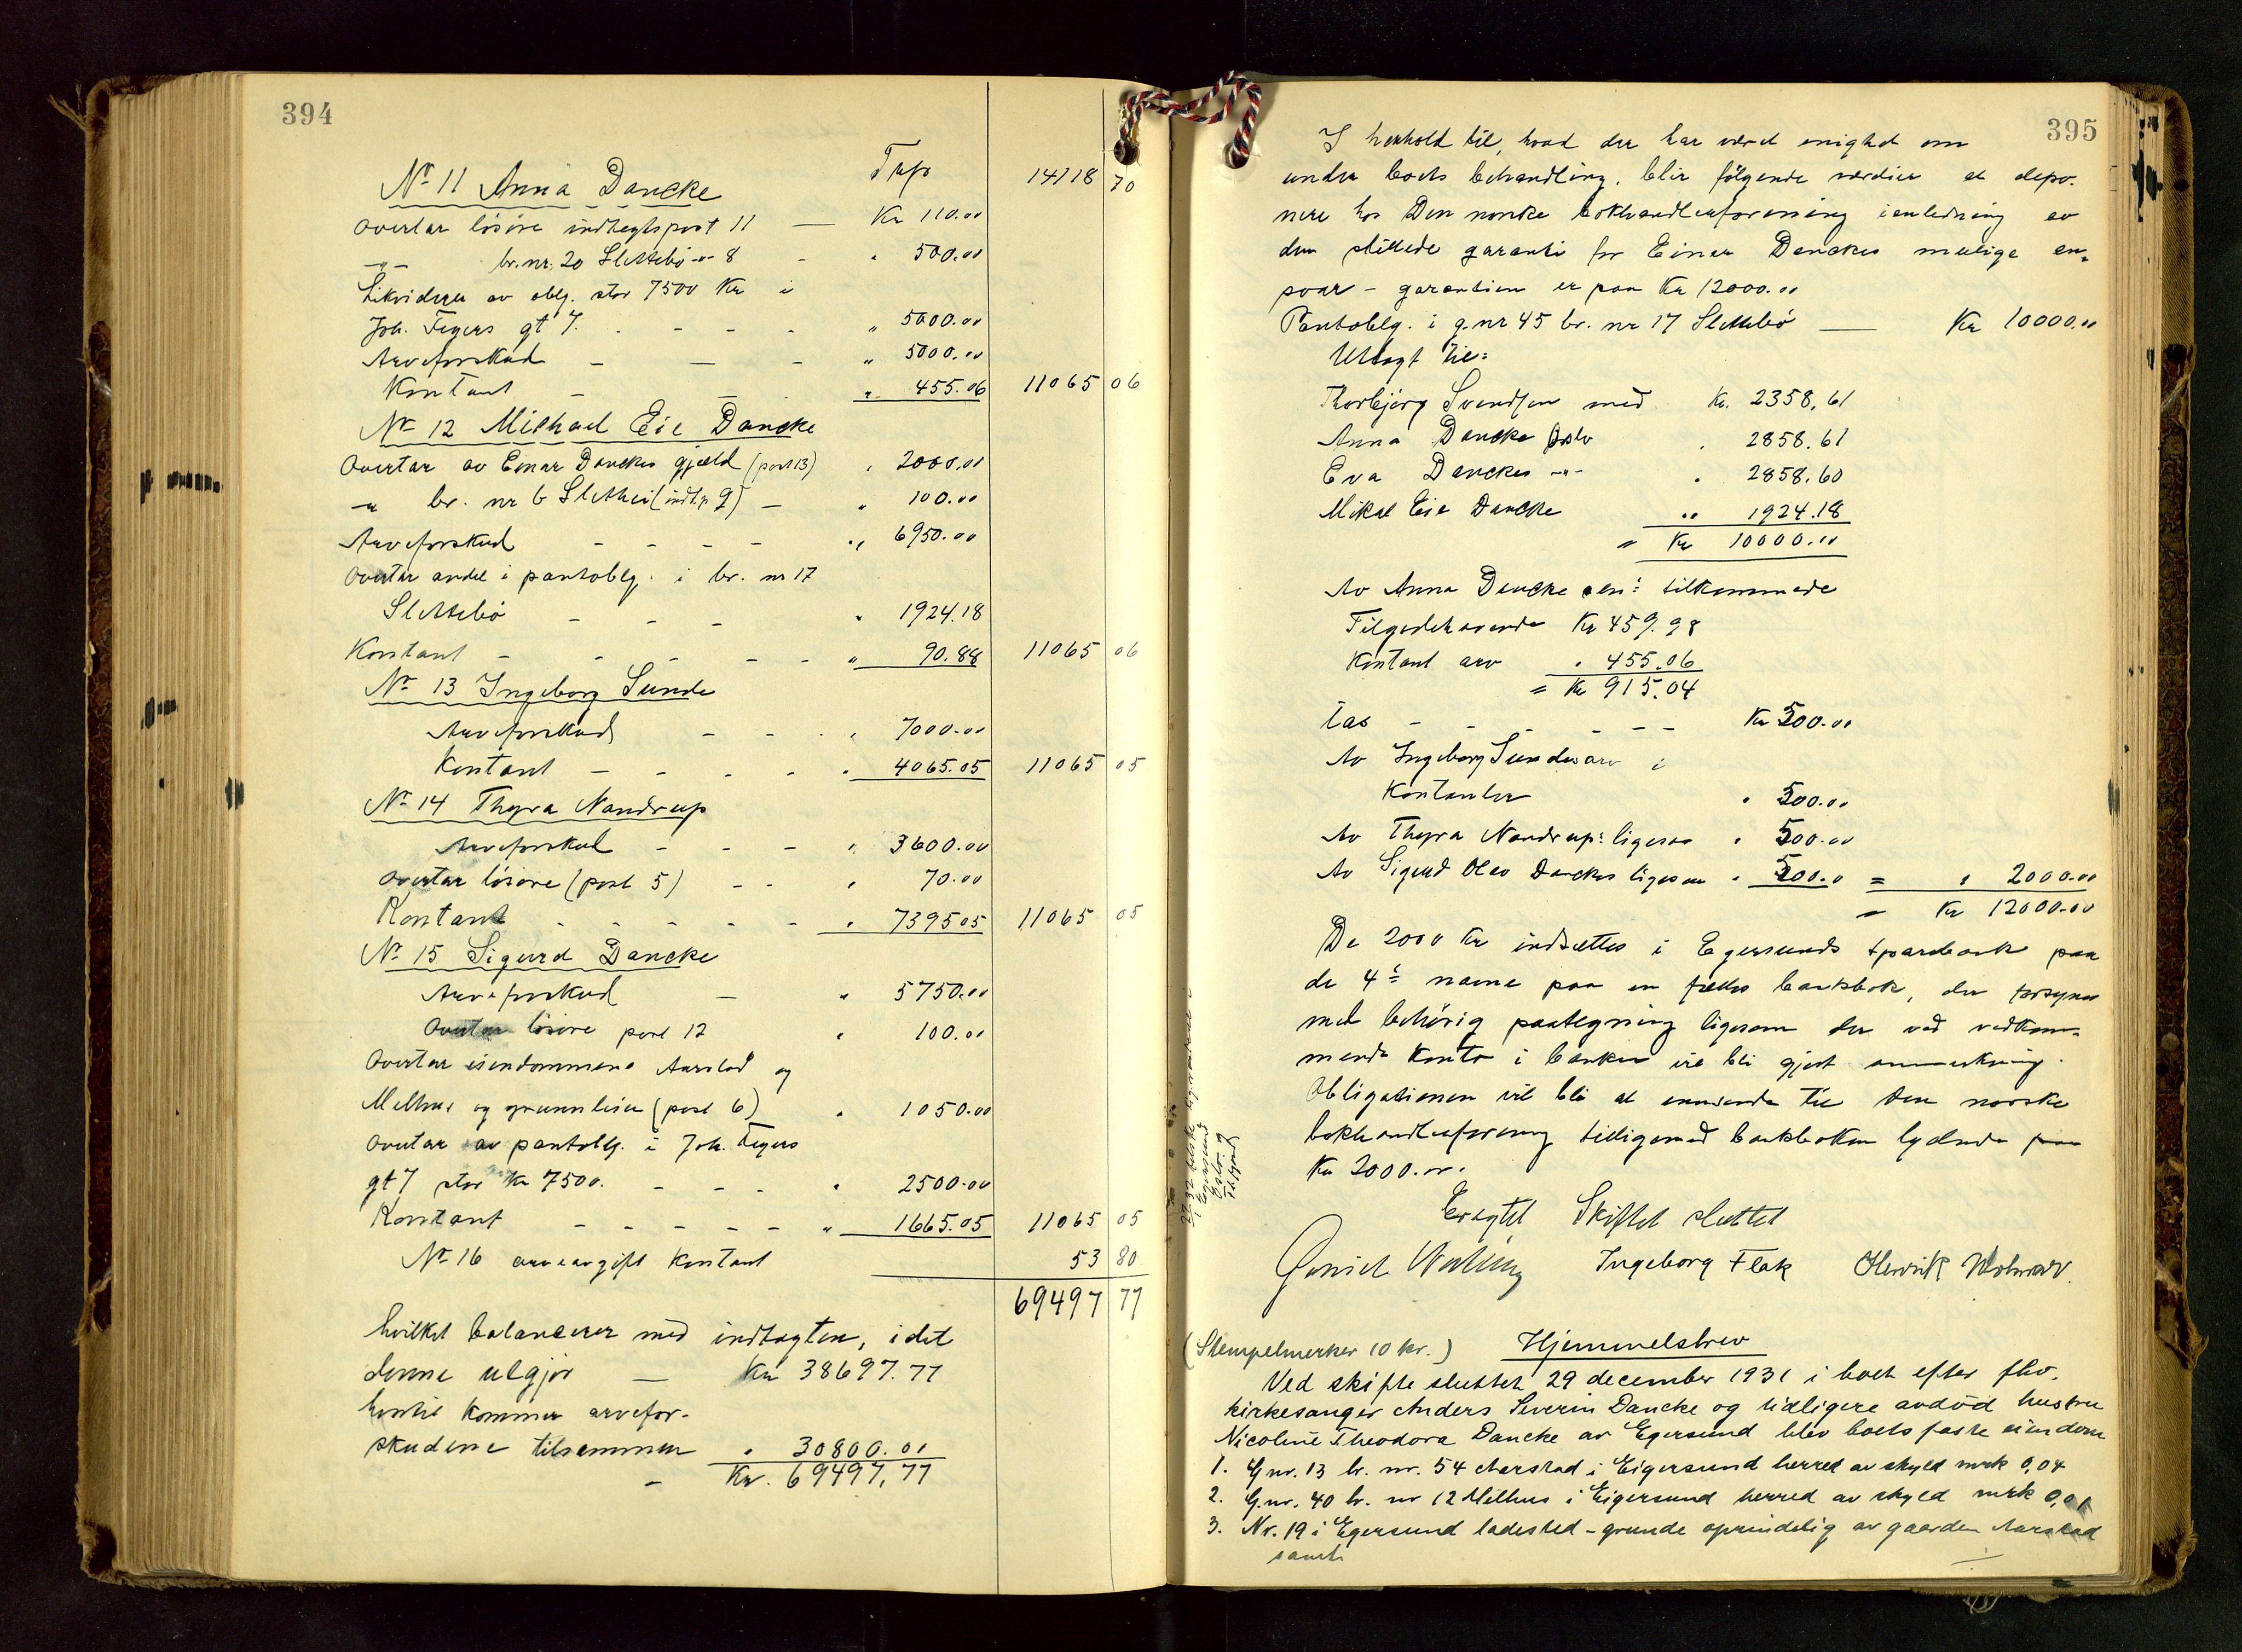 394
Trfr 14118 70
No 11 Anna Dancke
Overtar løsøre indtegtspost 11 — Kr 110.00
-"- br. nr. 20 Slettebö -"- 8 - " 500.00
Likviderer av oblg. stor 7500 Kr i
Joh. Fegers gt 7. - - - " 5000.00
Arveforskud - — - " 5000.00
Kontant - - " 455.06 11065 06
No 12 Michael Eie Dancke
Overtar av Einar Danckes gjæld (post 13) " 2000.00
-"- br. nr 6 Slethei (indt. p 9) - " 100.00
Arveforskud - - - - " 6950.00
Overtar andel i pantoblg. i br. nr 17
Slettebö - - - " 1924.18
Kontant - - - - - " 90.88 11065 06
No 13 Ingeborg Sunde
Arveforskud - - - " 7000.00
Kontant - - - - " 4065.05 11065 05
No 14 Thyra Nandrup
Arveforskud - - - " 3600.00
Overtar løsøre (post 5) - - " 70.00
Kontant - - - - - " 7395 05 11065 05
No 15 Sigurd Dancke
Arveforskud - " 5750.00
Overtar løsøre post 12 " 100.00
Overtar eiendommene Aarstad og
Melhus og grunnleien (post 6) " 1050.00
Overtar av pantoblg. i Joh. Fegers
gt 7 stor Kr 7500. - - - " 2500.00
Kontant - - - - - " 1665.05 11065 05
No 16 arveavgift kontant 53 80
69497 77
hvilket balancerer med indtægten, idet
denne utgjør — Kr 38697.77
hertil kommer arvefor-
skudene tilsammen " 30800.00
- Kr. 69497,77
395
I henhold til, hvad der har været enighet om
under boets behandling, blir følgende værdier at depo-
nere hos Den norske bokhandlerforening i anledning av
den stillede garanti for Einar Danckes mulige an-
svar - garantien er paa Kr 12000.00
Pantoblg. i g.nr 45 br. nr 17 Slettebö — Kr 10000.00
Utlagt til:
Thorbjørg Svendsen med Kr. 2358,61
Anna Dancke " 2858.61
Eva Danckes -"- " 2858,60
Mikal Eie Dancke " 1924.18
= Kr 10000.00
Av Anna Dancke sen: tilkommende
Tilgodehavende Kr 459.98
Kontant arv " 455.06
= Kr 915.04
tas - - - - - Kr 500.00
Av Ingeborg Sundes arv i
Kontanter " 500.00
Av Thyra Nandrup: ligesaa " 500.00
Av Sigurd Olav Danckes ligesaa " 500.00 = " 2000.00
= Kr 12000.00
De 2000 Kr indsættes i Egersunds sparebank paa
de 4s navne paa en fælles bankbok, der forsynes
med behörig paategning ligesom der ved vedkom-
mende Konto i banken vil bli gjort anmerkning.
Obligationen vil bli at innsende til Den norske
bokhandlerforening tilligemed bankboken lydende paa
Kr 2000.00.
Skiftet sluttet
Ingeborg Flak
(Stempelmerker 10 kr.) Hjemmelsbrev
Ved skifte sluttet 29 december 1931 i boet efter fhv.
kirkesanger Anders Severin Dancke og tidligere avdöd hustru
Nicoline Theodora Dancke av Egersund blev boets faste eiendom
1. G.nr. 13 br. nr. 54 Aarstad i Eigersund herred av skyld mrk 0,04
2. G.nr. 40 br. nr 12 Melhus i Eigersund herred av skyld mrk 0,01
3. Nr. 19 i Egersund ladested - grunde oprindelig av gaarden Aarstad
samt